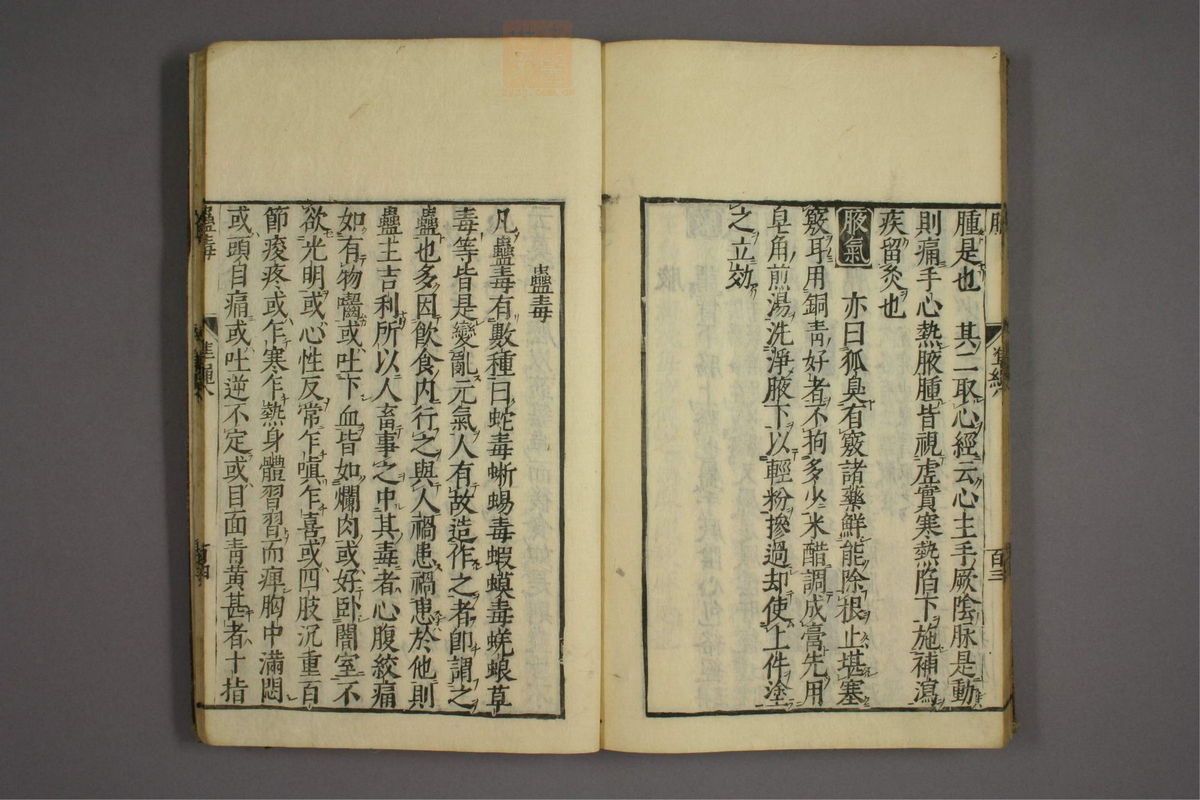 腫是也　其二取心經云心主手厥陰脉是動
則痛手心熱腋腫皆視虛實寒熱陷下施補瀉
疾留灸也
腋氣　亦曰狐臭有竅諸藥鮮能除根止堪塞
竅耳用銅青好者不拘多少米醋調成膏先用
皂角煎湯洗淨腋下以輕粉摻過却使上件塗
之立効
百三
蠱毒
凡蠱毒有數種曰蛇毒蜥蜴毒蝦蟆毒蜣蜋草
毒等皆是變亂元氣人有故造作之者即謂之
蠱也多因飲食内行之與人禍患禍患於他則
蠱主吉利所以人畜事之中其毒者心腹絞痛
如有物嚙或吐下血皆如爛肉或好卧闇室不
欲光明或心性反常乍嗔乍喜或四肢沉重百
節痠疼或乍寒乍熱身體習習而痺胸中滿悶
或頭目痛或吐逆不定或目面青黃甚者十指
蠱毒
百四